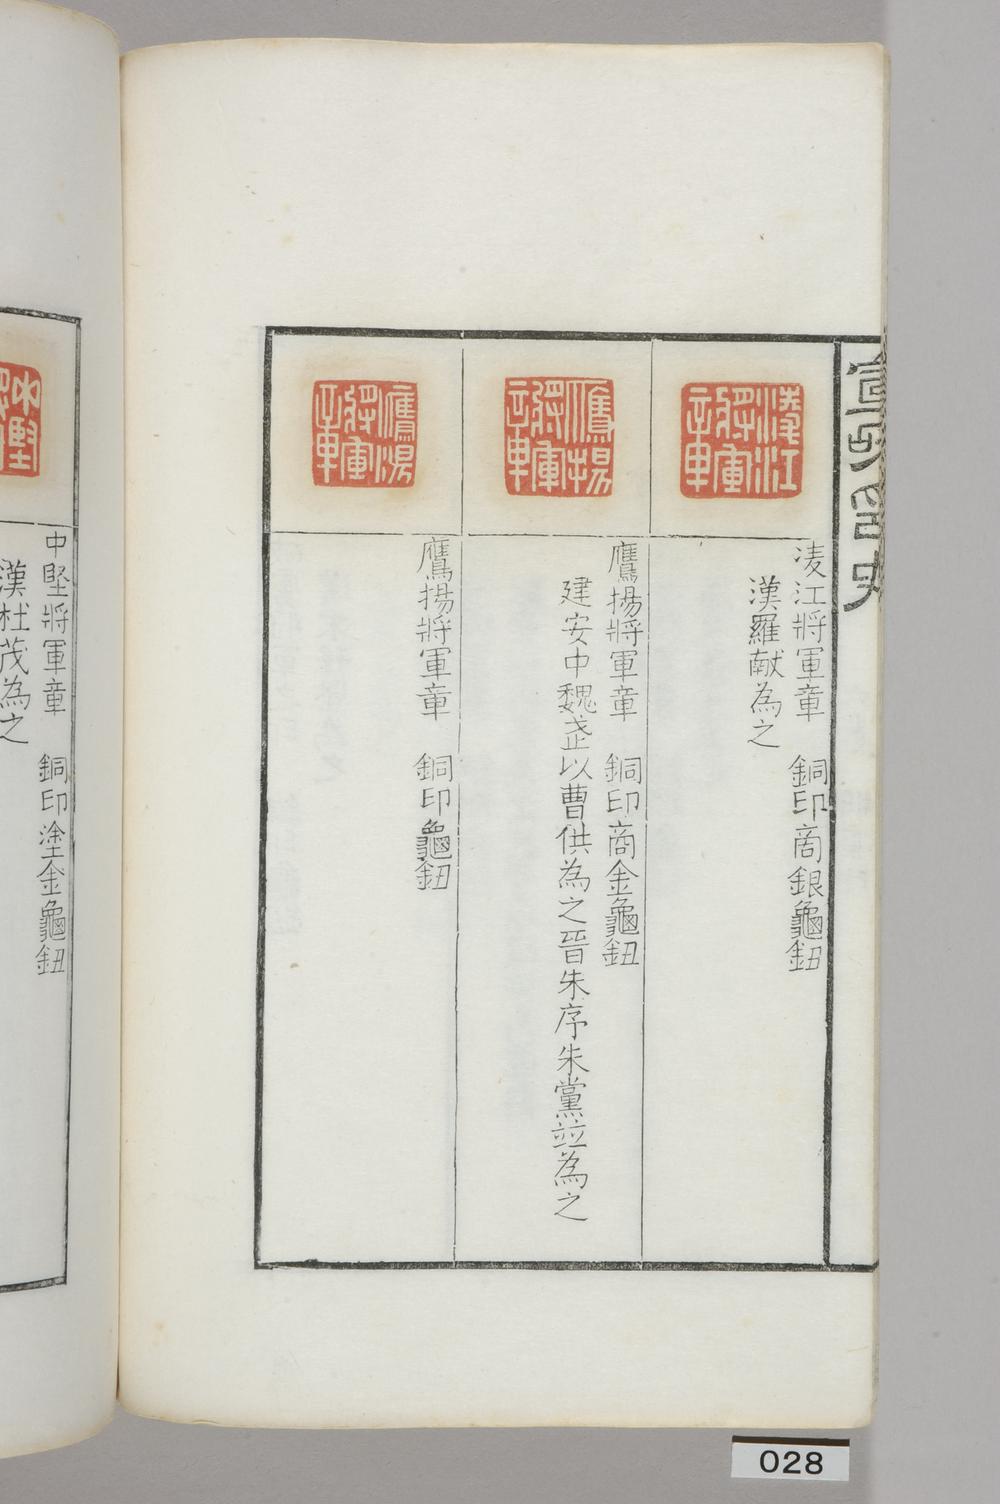 宣和印史
淩江將軍章
凌江將軍章　銅印商銀龜鈕
漢羅献為之
鷹揚將軍章
鷹揚將軍章　銅印商金龜鈕
建安中魏武以曹供為之晉朱序朱黨竝為之
鷹揚將軍章
鷹揚將軍章　銅印龜鈕
中堅將軍章　銅印塗金龜鈕
漢杜茂為之
028